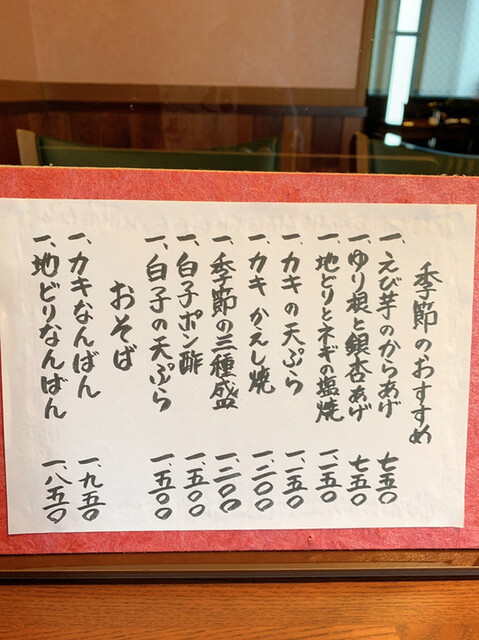 季節のおすすめ
一、えび芋のからあげ 七五〇
一、ゆり根と銀杏あげ 七五〇
一、地どりとネギの塩焼 一、一五〇
一、カキの天ぷら 一、一五〇
一、カキかえし焼 一、二〇〇
一、季節の三種盛 一、二〇〇
一、白子ポン酢 一、五〇〇
一、白子の天ぷら 一、五〇〇
おそば
一、カキなんばん 一、九五〇
一、地どりなんばん 一、八五〇